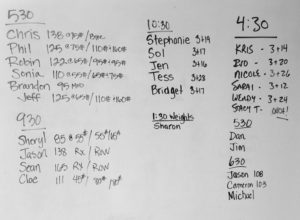 530
Chris 138
Phil 125 @ 75# / 110# 160#
Robin 122 @ 65# / 95# 95#
Sonia 110 @ 55# / 65# 75#
Brandon 95
Jeff 125 @ 65# / 110# 160#
930
Sheryl 95 @ 55#
Jason 138 Rx / Row
Sean 165 Rx / Row
Cloe 111 45#
10:30
Stephanie 3+14
Sol 3+17
Jen 3+16
Tess 3+28
Bridget 3+17
1:30 Weights
Sharon
4:30
KRIS - 3+14
BYO - 3+20
NICOLE - 3+26
SARAH - 3+12
WENDY - 3+24
STACY T.
530
Dan
Jim
630
Jason 108
Cameron 103
Michael